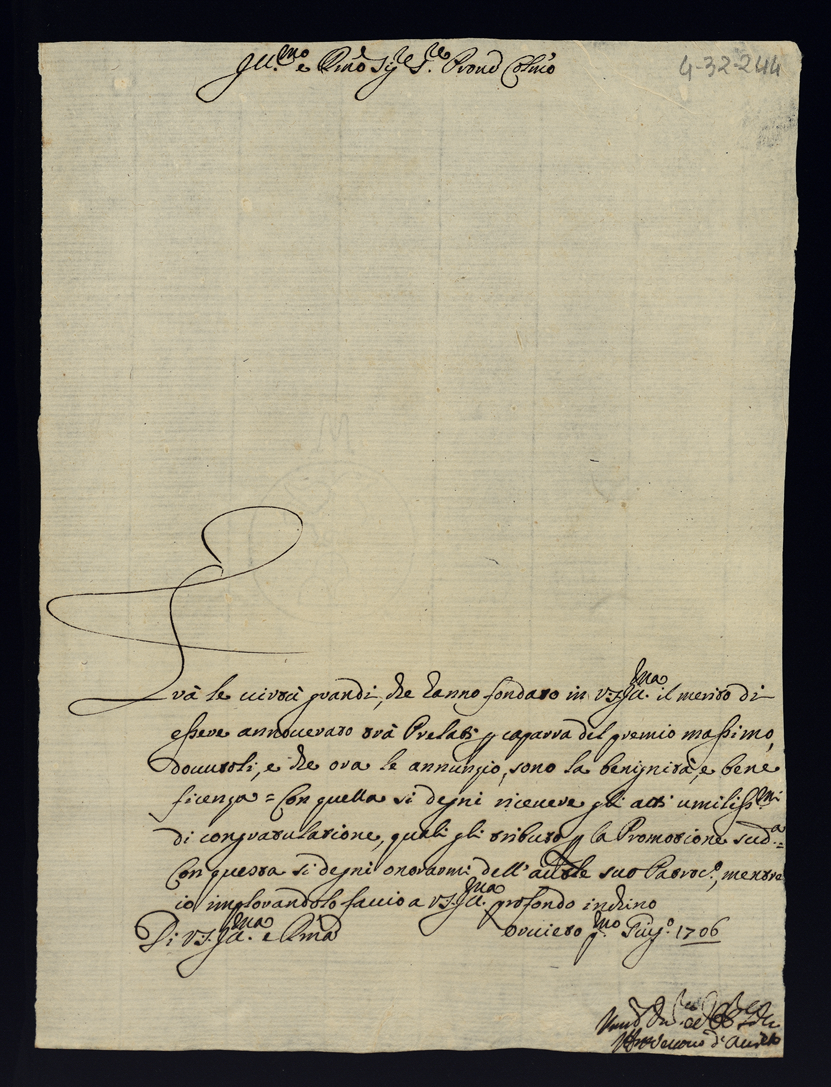 Ill.mo e Rmo Sig.e S.re Prone Colmo
4-32-244
Trà le uirtù grandi, che hanno fondato in V.S. Ill.ma il merito di
essere annouerato trà Prelati p caparra del premio massimo,
douutoli, e che ora le annunzio, sono la benignità, e bene
ficenza = Con quella si degni riceuere gli atti umiliss.mi
di congratulatione, quali gli tributo p la Promotione sud.a =
Con questa si degni onorarmi dell' suo Patroc.o, mentre
io implorandolo faccio a V.S. Ill.ma profondo inchino
Di V.S. Ill.ma e Rma Oruieto p.mo Giug.o 1706